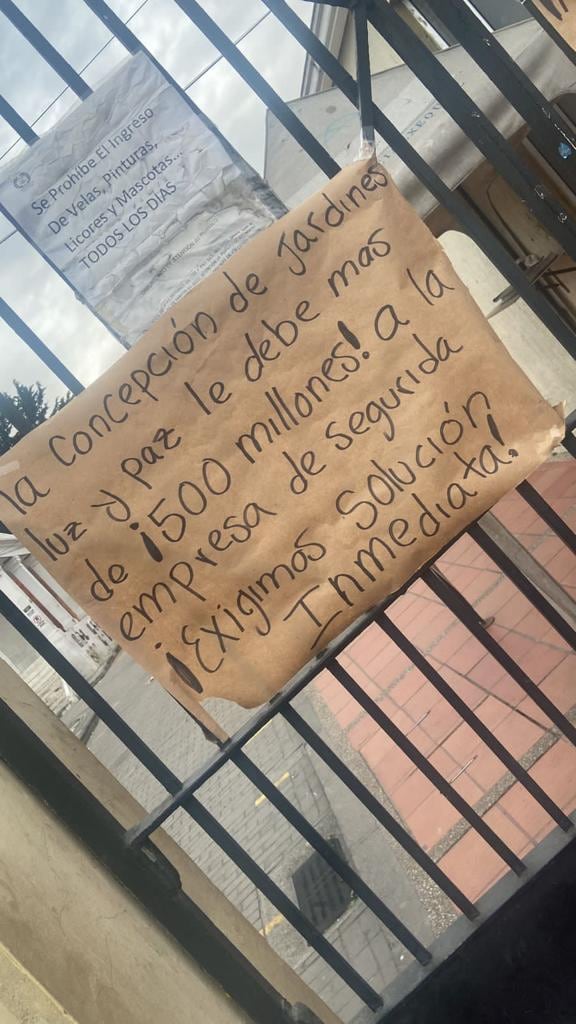 Se Prohibe El Ingreso
De Velas, Pinturas,
Licores y Mascotas...
TODOS LOS DÍAS
la Concepción de Jardines
luz y paz le debe mas
de ¡500 millones! a la
empresa de segurida
¡Exigimos Solución
Inmediata!